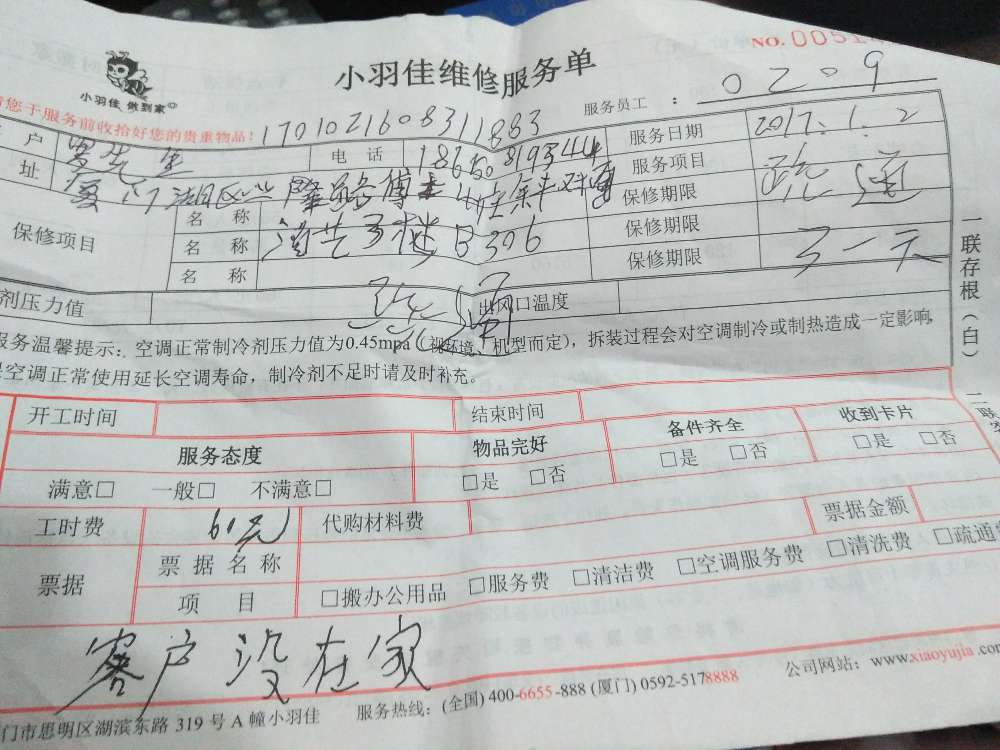 NO.0051
小羽佳维修服务单
小羽佳 做到家
服务员工 : 0209
请您于服务前收拾好您的贵重物品! 1701021608311883
户 电 话 服务日期 2017.1.2
址 服务项目 疏通
保修项目 名 称 保修期限
名 称 B306 保修期限
名 称 保修期限 天
剂压力值 出风口温度
服务温馨提示:空调正常制冷剂压力值为0.45mpa(视环境、机型而定),拆装过程会对空调制冷或制热造成一定影响,
空调正常使用延长空调寿命,制冷剂不足时请及时补充。
一联存根(白)
开工时间 结束时间
服务态度 物品完好 备件齐全 收到卡片
满意□ 一般□ 不满意□ □是 □否 □是 □否 □是 □否
工时费 60元 代购材料费 票据金额
票据 票据名称
项 目 □搬办公用品 □服务费 □清洁费 □空调服务费 □清洗费 □疏通
客户没在家
公司网站:www.xiaoyujia.com
门市思明区湖滨东路 319 号 A 幢小羽佳 服务热线:(全国) 400-6655-888 (厦门) 0592-5178888